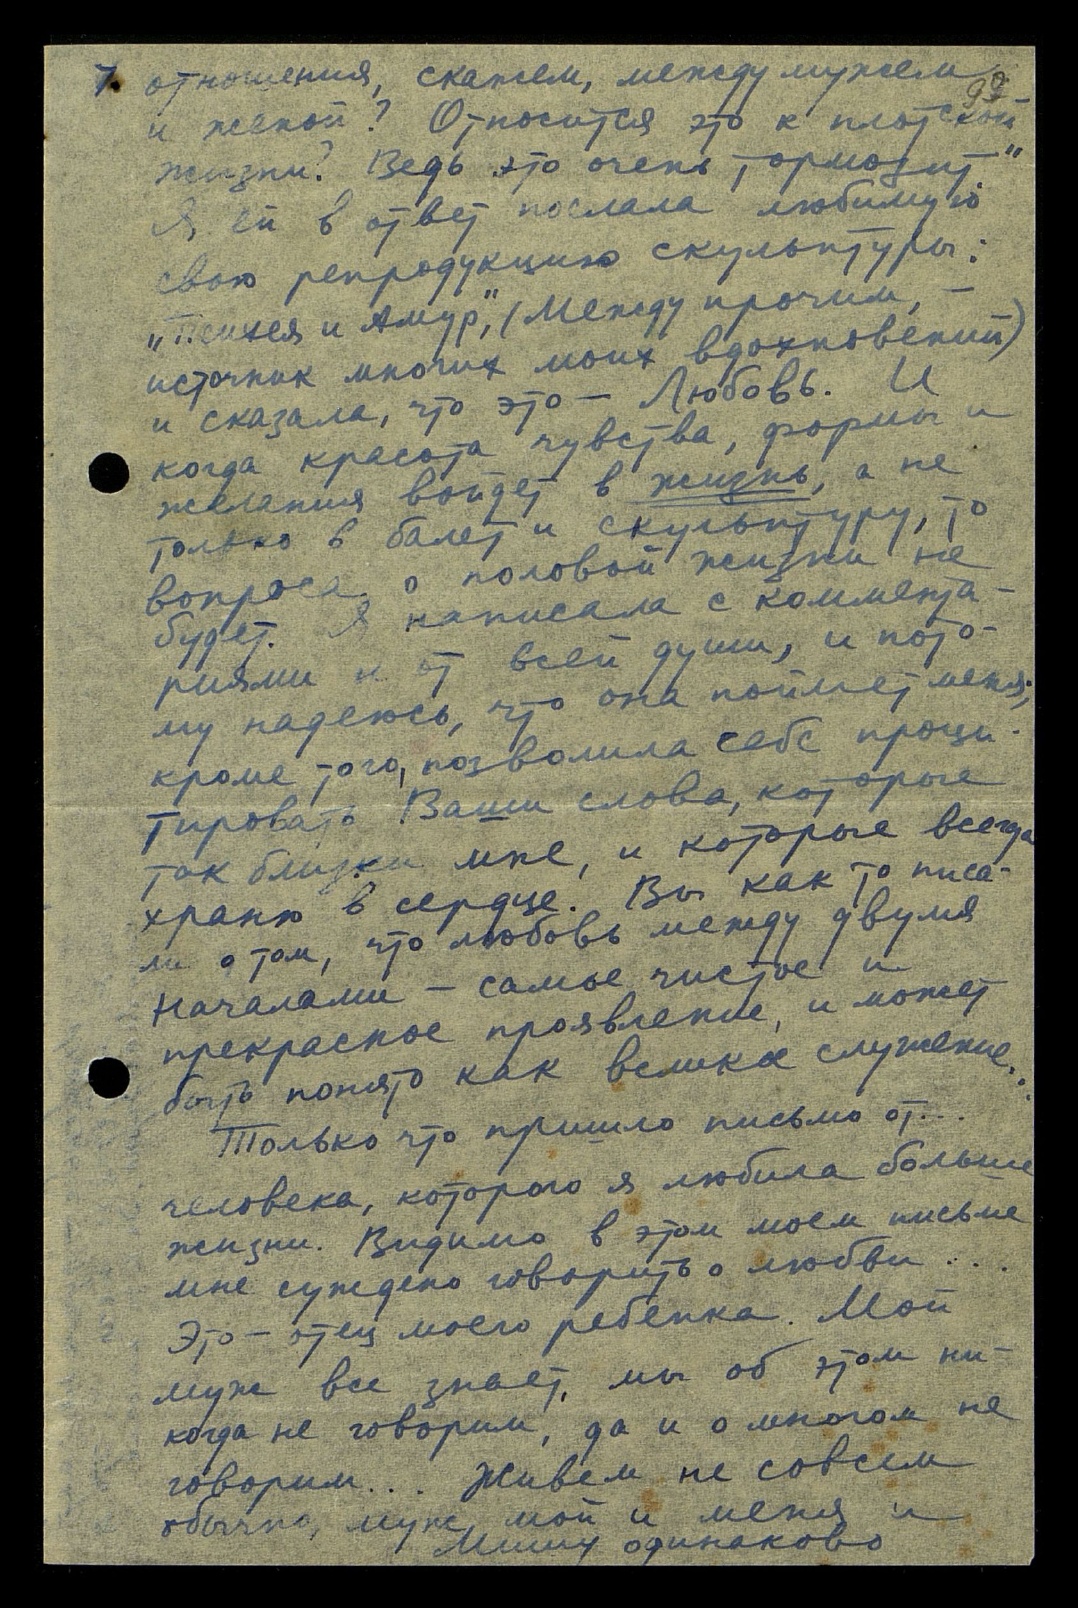 7. отношения, скажем, между мужем
99
и женой? Относится это к плотской
жизни? Ведь это очень „тормозит."
Я ей в ответ послала любимую
свою репродукцию скульптуры:
„Психея и Амур", (Между прочим, –
источник многих моих вдохновений)
и сказала, что это – Любовь. И
когда красота чувства, формы и
желания войдет в жизнь, а не
только в балет и скульптуру, то
вопроса о половой жизни не
будет. Я написала с коммента-
риями и от всей души, и пото-
му надеюсь, что она поймет меня;
кроме того, позволила себе проци-
тировать Ваши слова, которые
так близки мне, и которые всегда
храню в сердце. Вы как то писа-
ли о том, что любовь между двумя
Началами – самое чистое и
прекрасное проявление, и может
быть понято как великое служение..
Только что пришло письмо от...
человека, которого я любила больше
жизни. Видимо в этом моем письме
мне суждено говорить о любви ...
Это – отец моего ребенка. Мой
муж все знает, мы об этом ни-
когда не говорим, да и о многом не
говорим... Живем не совсем
обычно, муж мой и меня и
Мишу одинаково